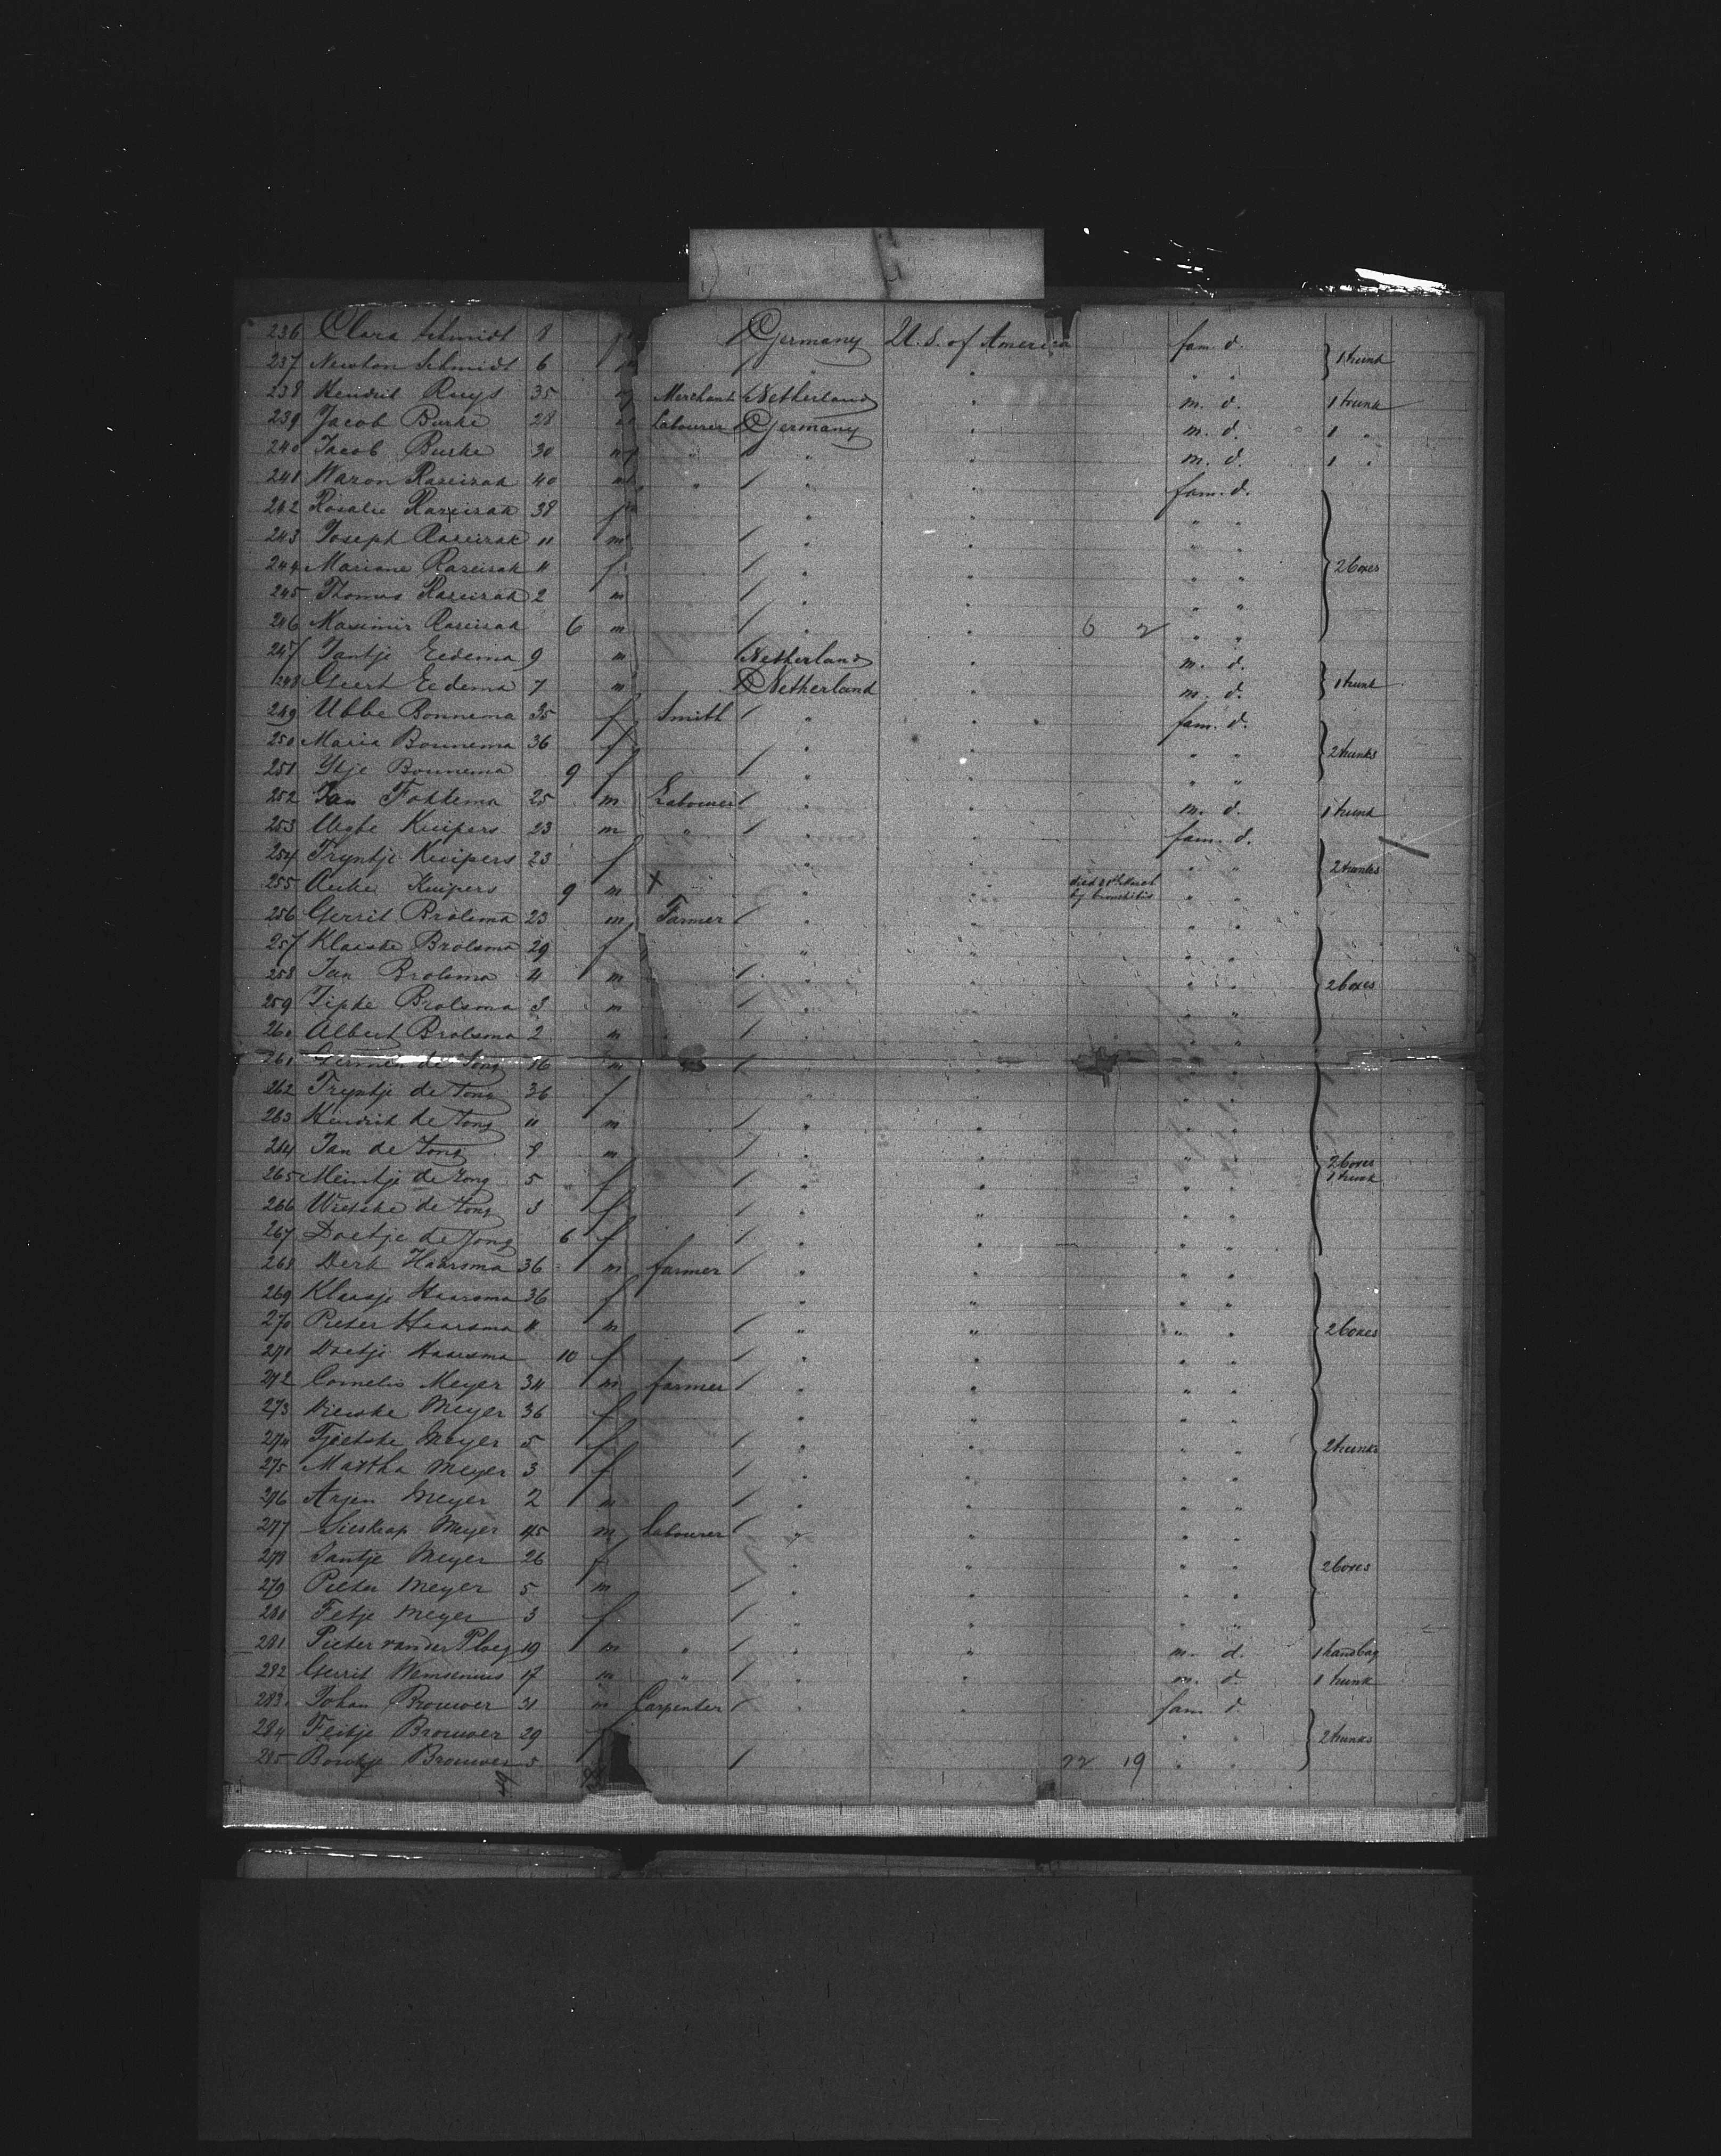 236 Clara Schmidt 8 Germany U. S. of America fam. d.
237 Newton Schmidt 6 " " " " 1 trunk
238 Hendrik Ruys 35 Merchant Netherland " m. d. 1 trunk
239 Jacob Burke 28 m Labourer Germany " m. d. 1 "
240 Jacob Burke 30 m " " " m. d. 1 "
241 40 m " " " fam. d.
242 Rosalie 38 f " " " "
243 Joseph 11 m " " " "
244 Mariane f " " " " 2 boxes
245 Thomas 2 m " " " "
246 6 m " " 6 2 " "
247 Jantje Eedema 9 m Netherland " m. d.
248 Geert Eedema 7 m Netherland " m. d. 1 trunk
249 Ubbe Bonnema 35 f Smith " " fam. d.
250 Maria Bonnema 36 f " " " " 2 trunks
251 Ytje Bonnema 9 f " " " "
252 Jan Fokkema 25 m Labourer " " m. d. 1 trunk
253 Kuipers 23 m " " " fam. d.
254 Tryntje Kuipers 23 f " " " " 2 trunks
255 Auke Kuipers 9 m X died March " "
by bronchitis
256 Gerrit Brolsma 23 m Farmer " " " "
257 Klaaske Brolsma 29 f " " " "
258 Jan Brolsma 4 m " " " " 2 boxes
259 Brolsma 3 m " " " "
260 Albert Brolsma 2 m " " " "
261 de Jong 36 m " "
262 Tryntje de Jong 36 f " " " "
263 Hendrik de Jong 11 m " " " "
264 Jan de Jong m " " " " 2 boxes
265 Meintje de Jong 5 f " " " " 1 trunk
266 Wietske de Jong 3 f " " " "
267 Doetje de Jong 6 f " " " "
268 Derk Haarsma 36 m farmer " " " "
269 Klaasje Haarsma 36 f " " " "
270 Pieter Haarsma m " " " " 2 boxes
271 Doetje Haarsma 10 f " " " "
272 Cornelis Meyer 34 m farmer " " " "
273 Meyer 36 f " " " "
274 Tjietske Meyer 5 f " " " " 2 trunks
275 Martha Meyer 3 f " " " "
276 Arjen Meyer 2 m " " " "
277 Meyer 45 m Labourer " " " "
278 Jantje Meyer 26 f " " " " 2 boxes
279 Pieter Meyer 5 m " " " "
280 Fetje Meyer 3 f " " " "
281 Pieter van der Ploeg 19 m " " " m. d. 1 handbag
282 Gerrit 17 m " " " m. d. 1 trunk
283 Johan Brouwer 31 m Carpenter " " fam d
284 Feitje Brouwer 29 f " " " " 2 trunks
285 Brouwer 5 22 19 " "